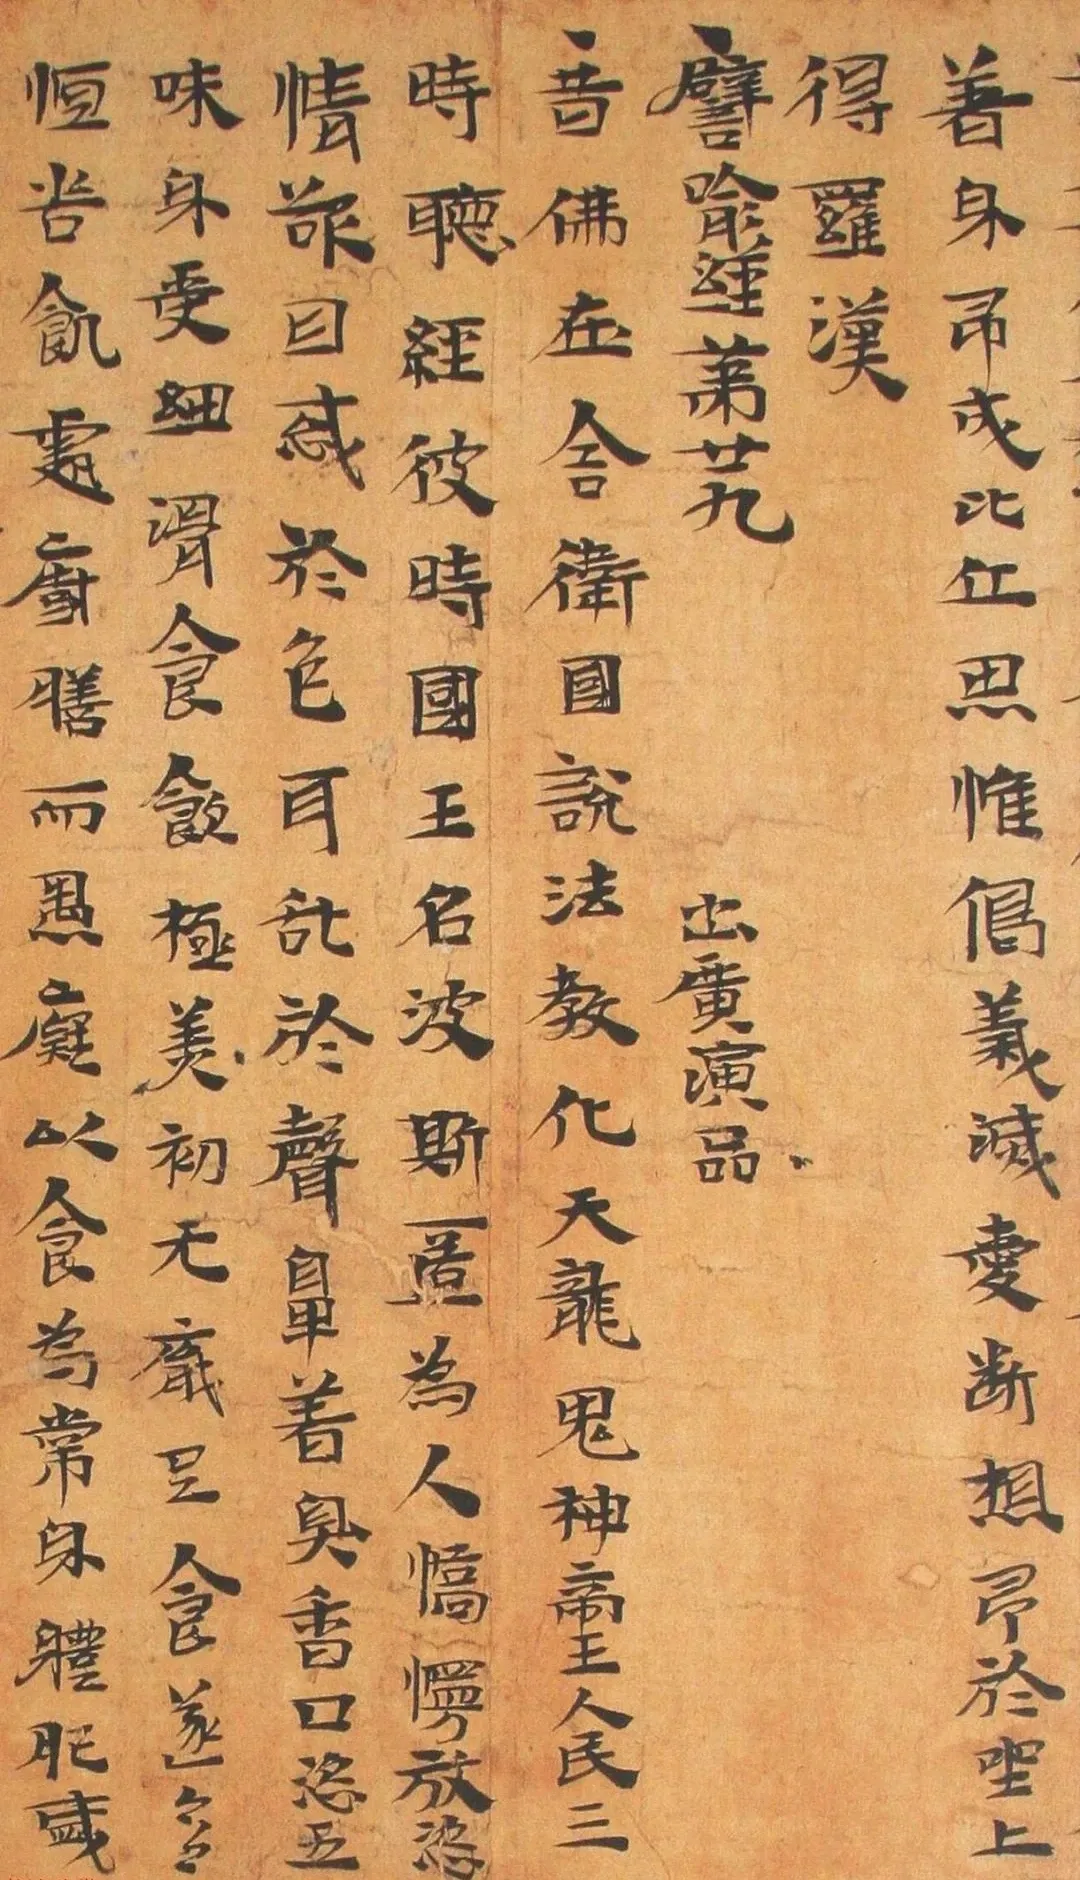 著身即成比丘思惟偈義滅愛斷想即於坐上
得羅漢
譬喻經第廿九 出廣演品
昔佛在舍衛國說法教化天龍鬼神帝王人民三
時聽經彼時國王名波斯匿為人憍慢放恣
情欲目惑於色耳乱於聲鼻著臭香口恣五
味身受細滑食飲極美初无厭足食遂
恒苦飢虛廚膳而愚癡以食為常身體肥盛